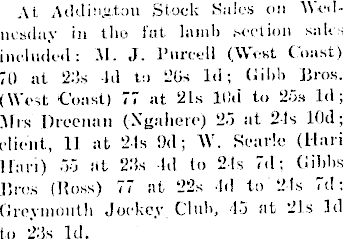 At Addington Stock Sales on Wed-
nesday in the fat lamb section sales
included: M. J. Purcell (West Coast)
70 at 23s 4d to 26s 1d; Gibb Bros.
(West Coast) 77 at 21s 10d to 25s 1d;
Mrs Dreenan (Ngahere) 25 at 24s 10d;
client, 11 at 24s 9d; W. Searle (Hari
Hari) 55 at 23s 4d to 24s 7d; Gibbs
Bros (Ross) 77 at 22s 4d to 24s 7d;
Greymouth Jockey Club, 45 at 21s 1d
to 23s 1d.